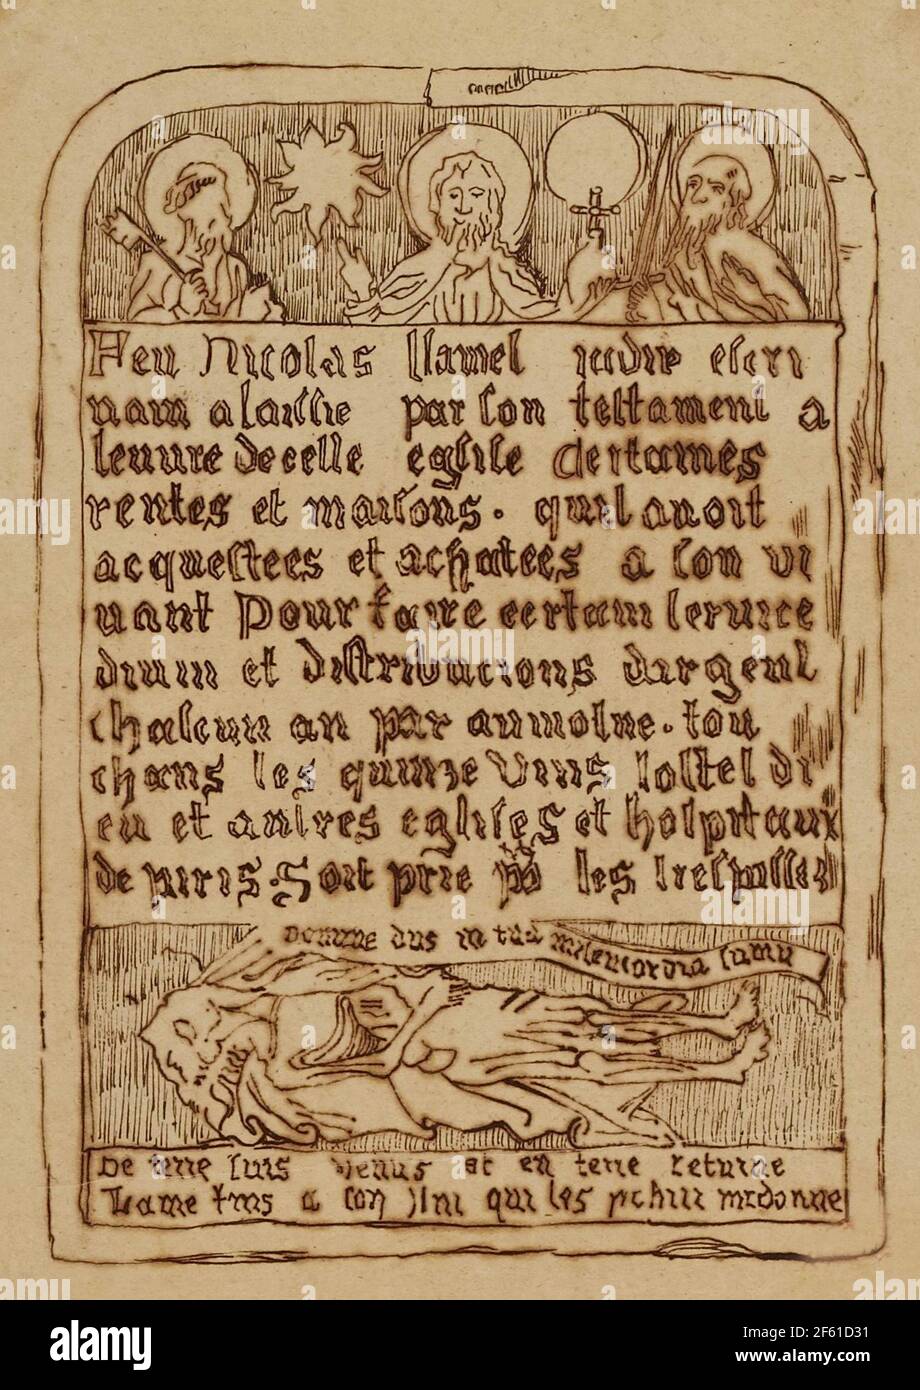 Feu Nicolas flamel jadis escri
uain a laissie par son testament a
leuure de ceste eglise Certaines
rentes et maisons . quil auoit
acquestees et achatees a son vi
uant Pour faire certain seruice
diuin et distribucions dargent
chascun an par aumosne . tou
chans les quinze Vins lostel di
eu et autres eglises et hospitaux
de paris . Soit prie pour les trespasses
Domine deus in tua misericordia
De terre suis venus et en terre retourne
Lame a son qui les donne
a
alamy
Image ID: 2F61D31
www.alamy.com